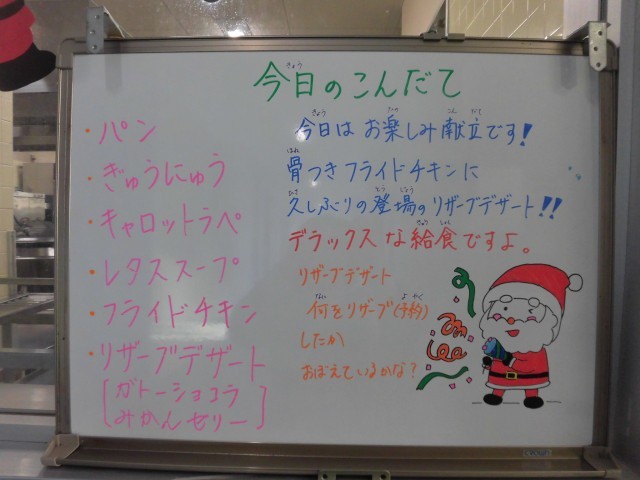 今日のこんだて
・パン
・ぎゅうにゅう
・キャロットラペ
・レタススープ
・フライドチキン
・リザーブデザート
[ガトーショコラ
みかんゼリー]
今日はお楽しみ献立です!
骨つきフライドチキンに
久しぶりの登場のリザーブデザート!!
デラックスな給食ですよ。
リザーブデザート
何をリザーブ(予約)
したか
おぼえているかな?